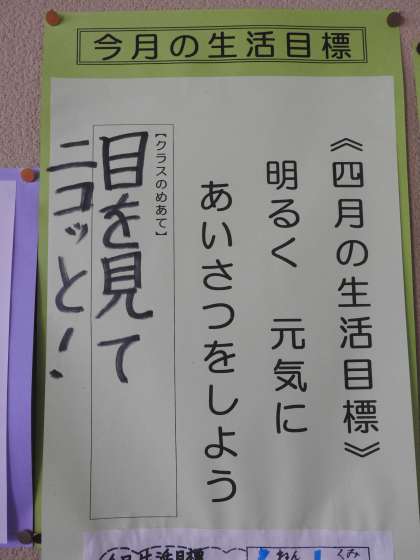 今月の生活目標
《四月の生活目標》
明るく　元気に
あいさつをしよう
【クラスのめあて】
目を見て
ニコッと！
ねん
くみ